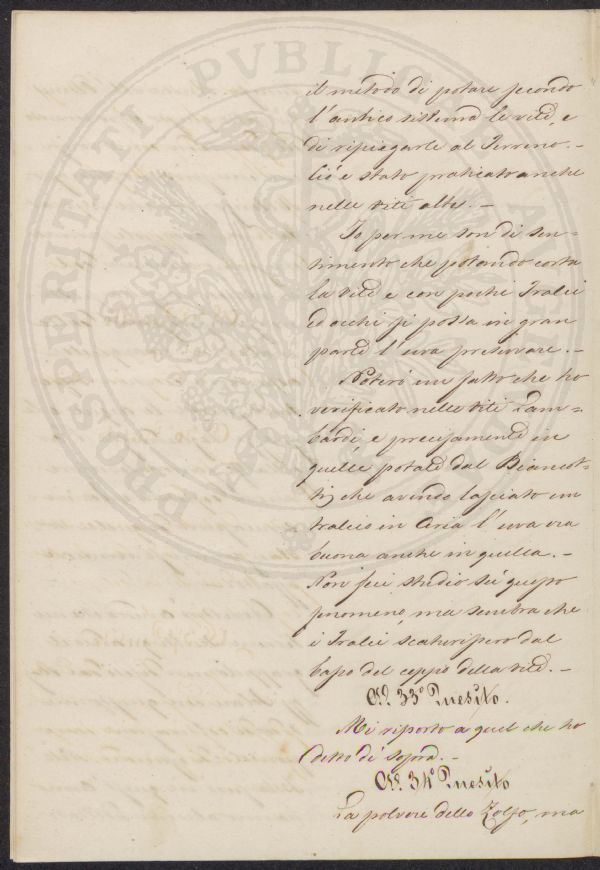 il metodo di potare secondo
l'antico sistema le vite, e
di ripiegarle al Terreno. -
Ciò è stato praticato anche
nelle vite alte. -
Io per me son di sen=
timento che potando corta
la vite e con pochi Tralci
ed occhi si possa in gran
parte l'uva preservare. -
Noterò un fatto che ho
verificato nelle viti Lam=
bardi, e precisamente in
quelle potate dal Biancot=
ti, che avendo lasciato un
tralcio in Aria l'uva era
buona anche in quella. -
Non feci studio su questo
fenomeno, ma sembra che
i Tralci scaturissero dal
basso del ceppo della vite. -
Al 33º Quesito.
Mi riporto a quel che ho
detto di sopra. -
Al 34º Quesito
La polvere dello Zolfo, ma
PROSPERITATI PVBLICAE